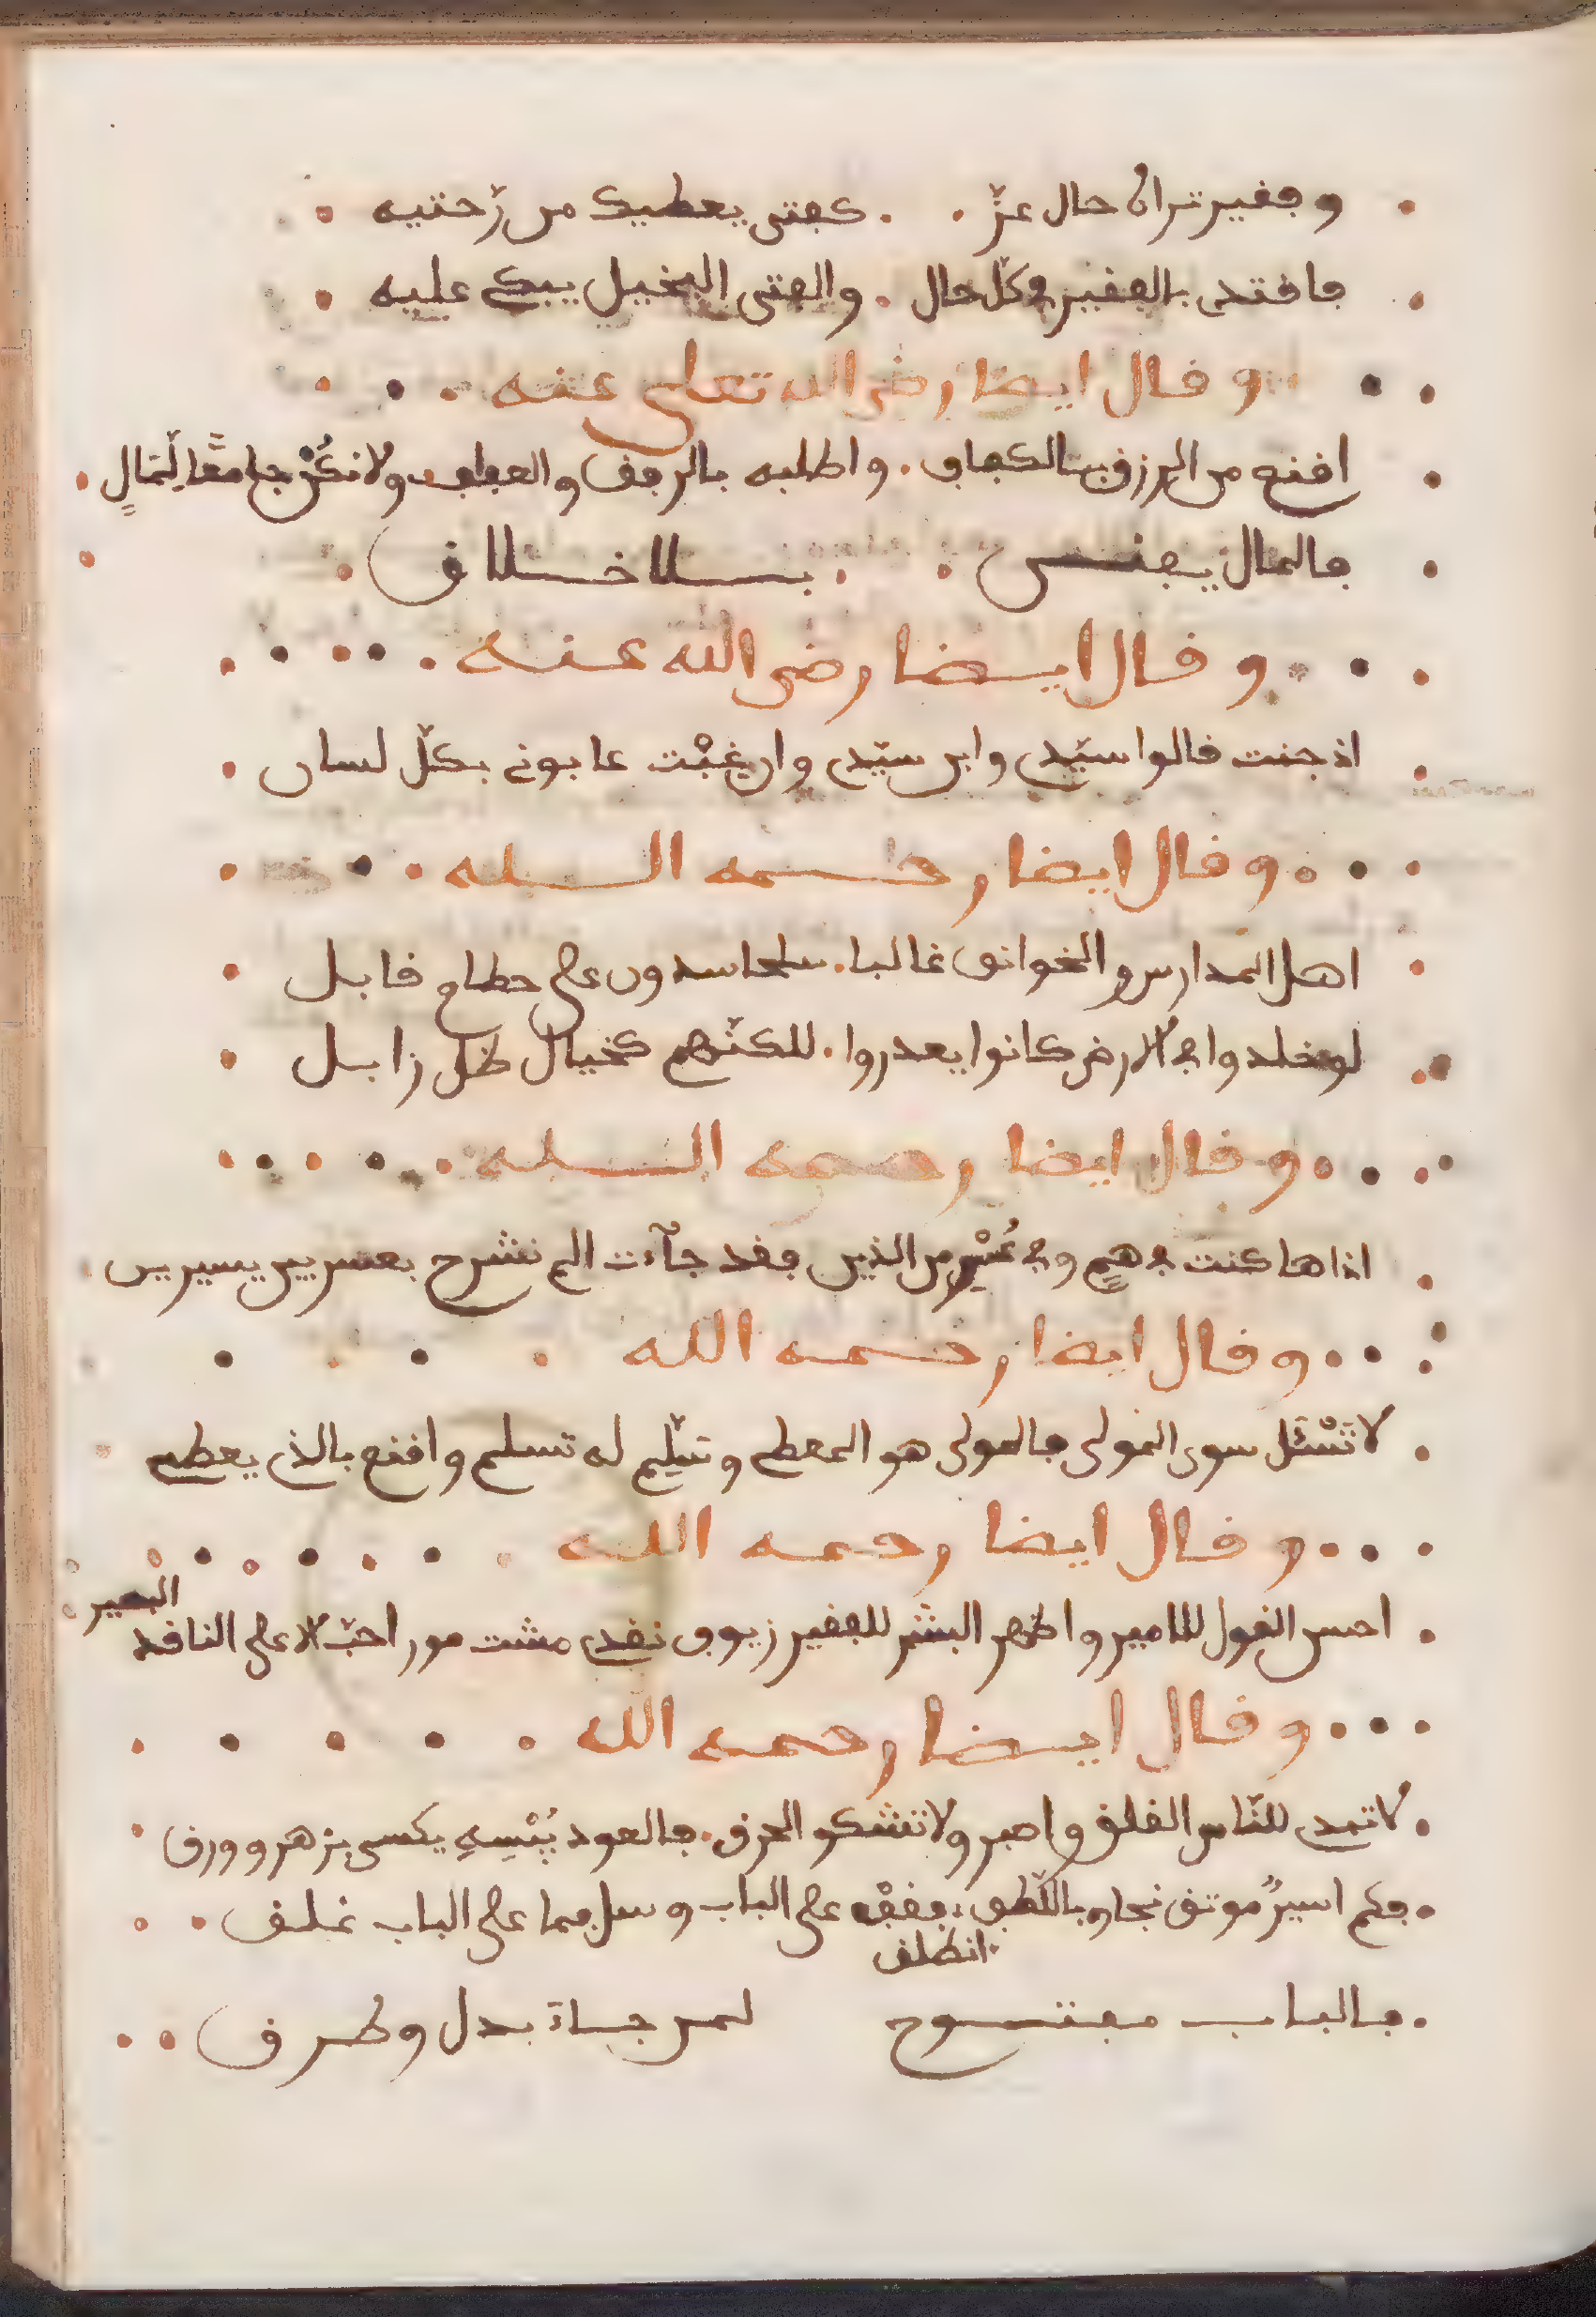 وفقير تراه حال عزّ . . كفتى يعطيك من رّحتيه
فافتد بالفقير في كلّ حال . والفتى البخيل يبكى عليه
وقال ايضا رضي الله تعلى عنه
اقنع من الرزق بالكفاف . واطلبه بالرفق والعفاف ولا تكُنْ جامعًا لّمَالٍ
فالمال يفنى بلا خلاف
وقال ايضا رضى الله عنه
اذ جئت قالوا سيّدي وابن سيّدي وان غِبْت عابوني بكلّ لسان
وقال ايضا رحمه الله
اهل المدارس والخوانق غالبا . متحاسدون على حطام قابل
لو خلدوا في الارض كانوا يعذروا . للكنّهم كخيال ظل زايل
وقال ايضا رحمه الله
اذا ما كنت في همٍ وفي عُسْرٍ من الذين فقد جآءت الم نشرح بعسريين يسيرين
وقال ايضا رحمه الله
لا تَسْئَل سوى المولى فالمولى هو المعطى وسَلّم له تسلم واقنع بالذى يعطي
وقال ايضا رحمه الله
احسن القول للامير واظهر البشر للفقير زيوف نقدى مشت مور احبّ لا على الناقد
البصير
وقال ايضا رحمه الله
لا تبدى للنّاس القلق واصبر ولا تشكو الحرق . فالعود يُبْسِهِ يكسى بزهر وورق
فكم اسيرً موثق نجاه باللّطف فقفْ على الباب وسل فما على الباب غلق
انطلق
فالباب مفتوح لمن جاء بذل وطرق